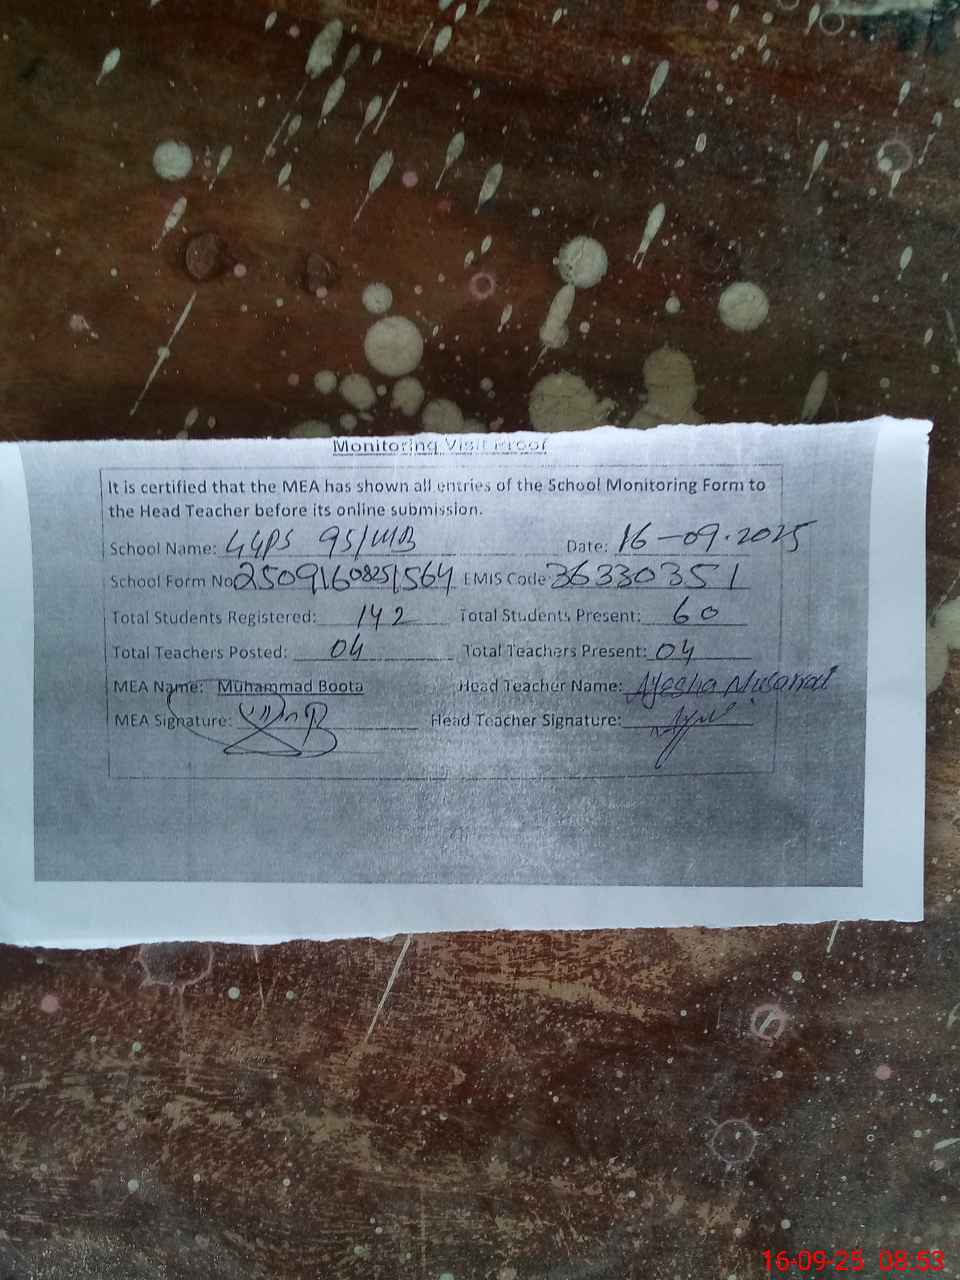 Monitoring Visit Proof
It is certified that the MEA has shown all entries of the School Monitoring Form to
the Head Teacher before its online submission.
School Name: GGPS 95/MB Date: 16-09-2025
School Form No 25091608251564 EMIS Code 36330351
Total Students Registered: 142 Total Students Present: 60
Total Teachers Posted: 04 Total Teachers Present: 04
MEA Name: Muhammad Boota Head Teacher Name: Ayesha Musarrat
MEA Signature: Head Teacher Signature:
16-09-25 08:53